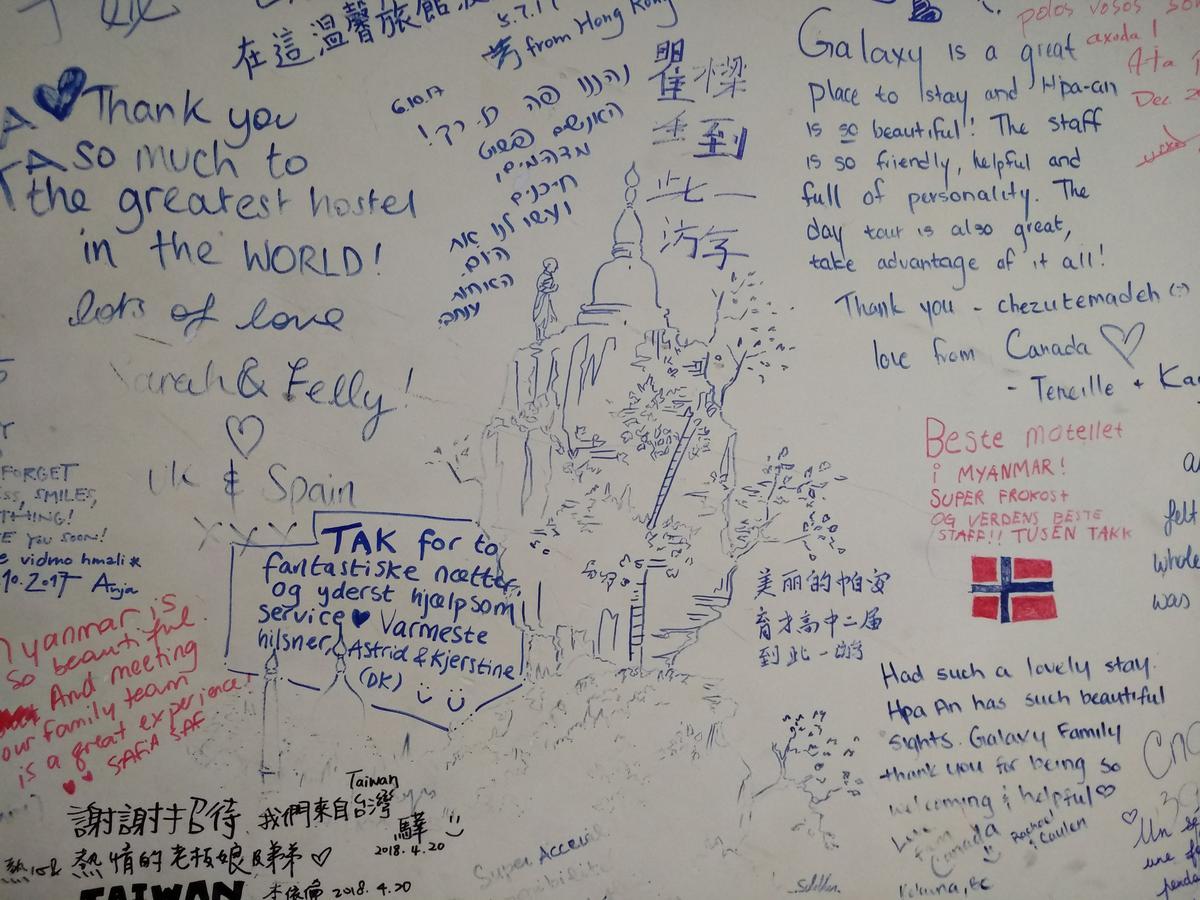 在這溫馨旅館
5.7.17
from Hong Kong
Thank you
so much to
the greatest hostel
in the WORLD!
lots of love
arah & Felly!
UK & Spain
XXX
6.10.17
נהננו פה
האנשים פשוט
מדהימים,
חייכנים
ועשו לנו את
היום.
到
此一
游
Galaxy is a great
place to stay and Hpa-an
is so beautiful! The staff
is so friendly, helpful and
full of personality. The
day tour is also great,
take advantage of it all!
Thank you - chezutemadeh
love from Canada
- Teneille +
polos vosos
axuda!
Dec.
Beste motellet
i MYANMAR!
SUPER FROKOST
OG VERDENS BESTE
STAFF!! TUSEN TAKK
felt
whole
was
FORGET
SMILES,
THING!
you soon!
vidmo hmali*
10.2017 Anja
TAK for to
fantastiske nætter,
og yderst hjælpsom
service ♥ Varmeste
hilsner, Astrid & Kjerstine
(DK)
美丽的帕安
育才高中二届
到此一游
yanmar is
so beautiful.
And meeting
our family team
is a great experience!
Had such a lovely stay.
Hpa An has such beautiful
sights. Galaxy Family
thank you for being so
welcoming & helpful♡
Canada
Rachael
Kelowna, BC
Taiwan
謝謝招待 我們來自台灣
2018.4.20
熱情的老板娘及弟弟 ♡
TAIWAN
2018.4.20
Super
Un
une